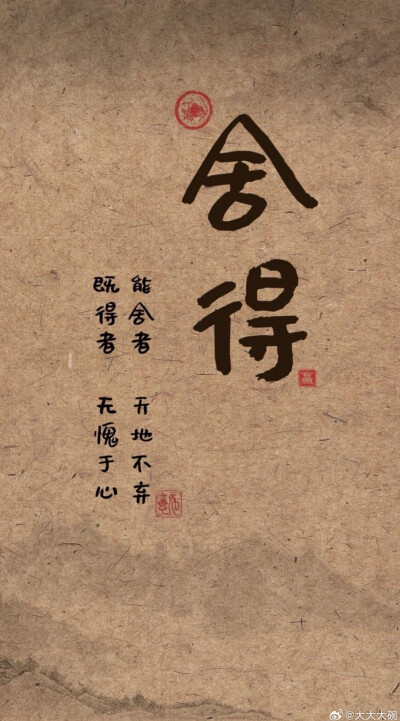 舍得
能舍者 天地不弃
既得者 无愧于心
@大大大砚